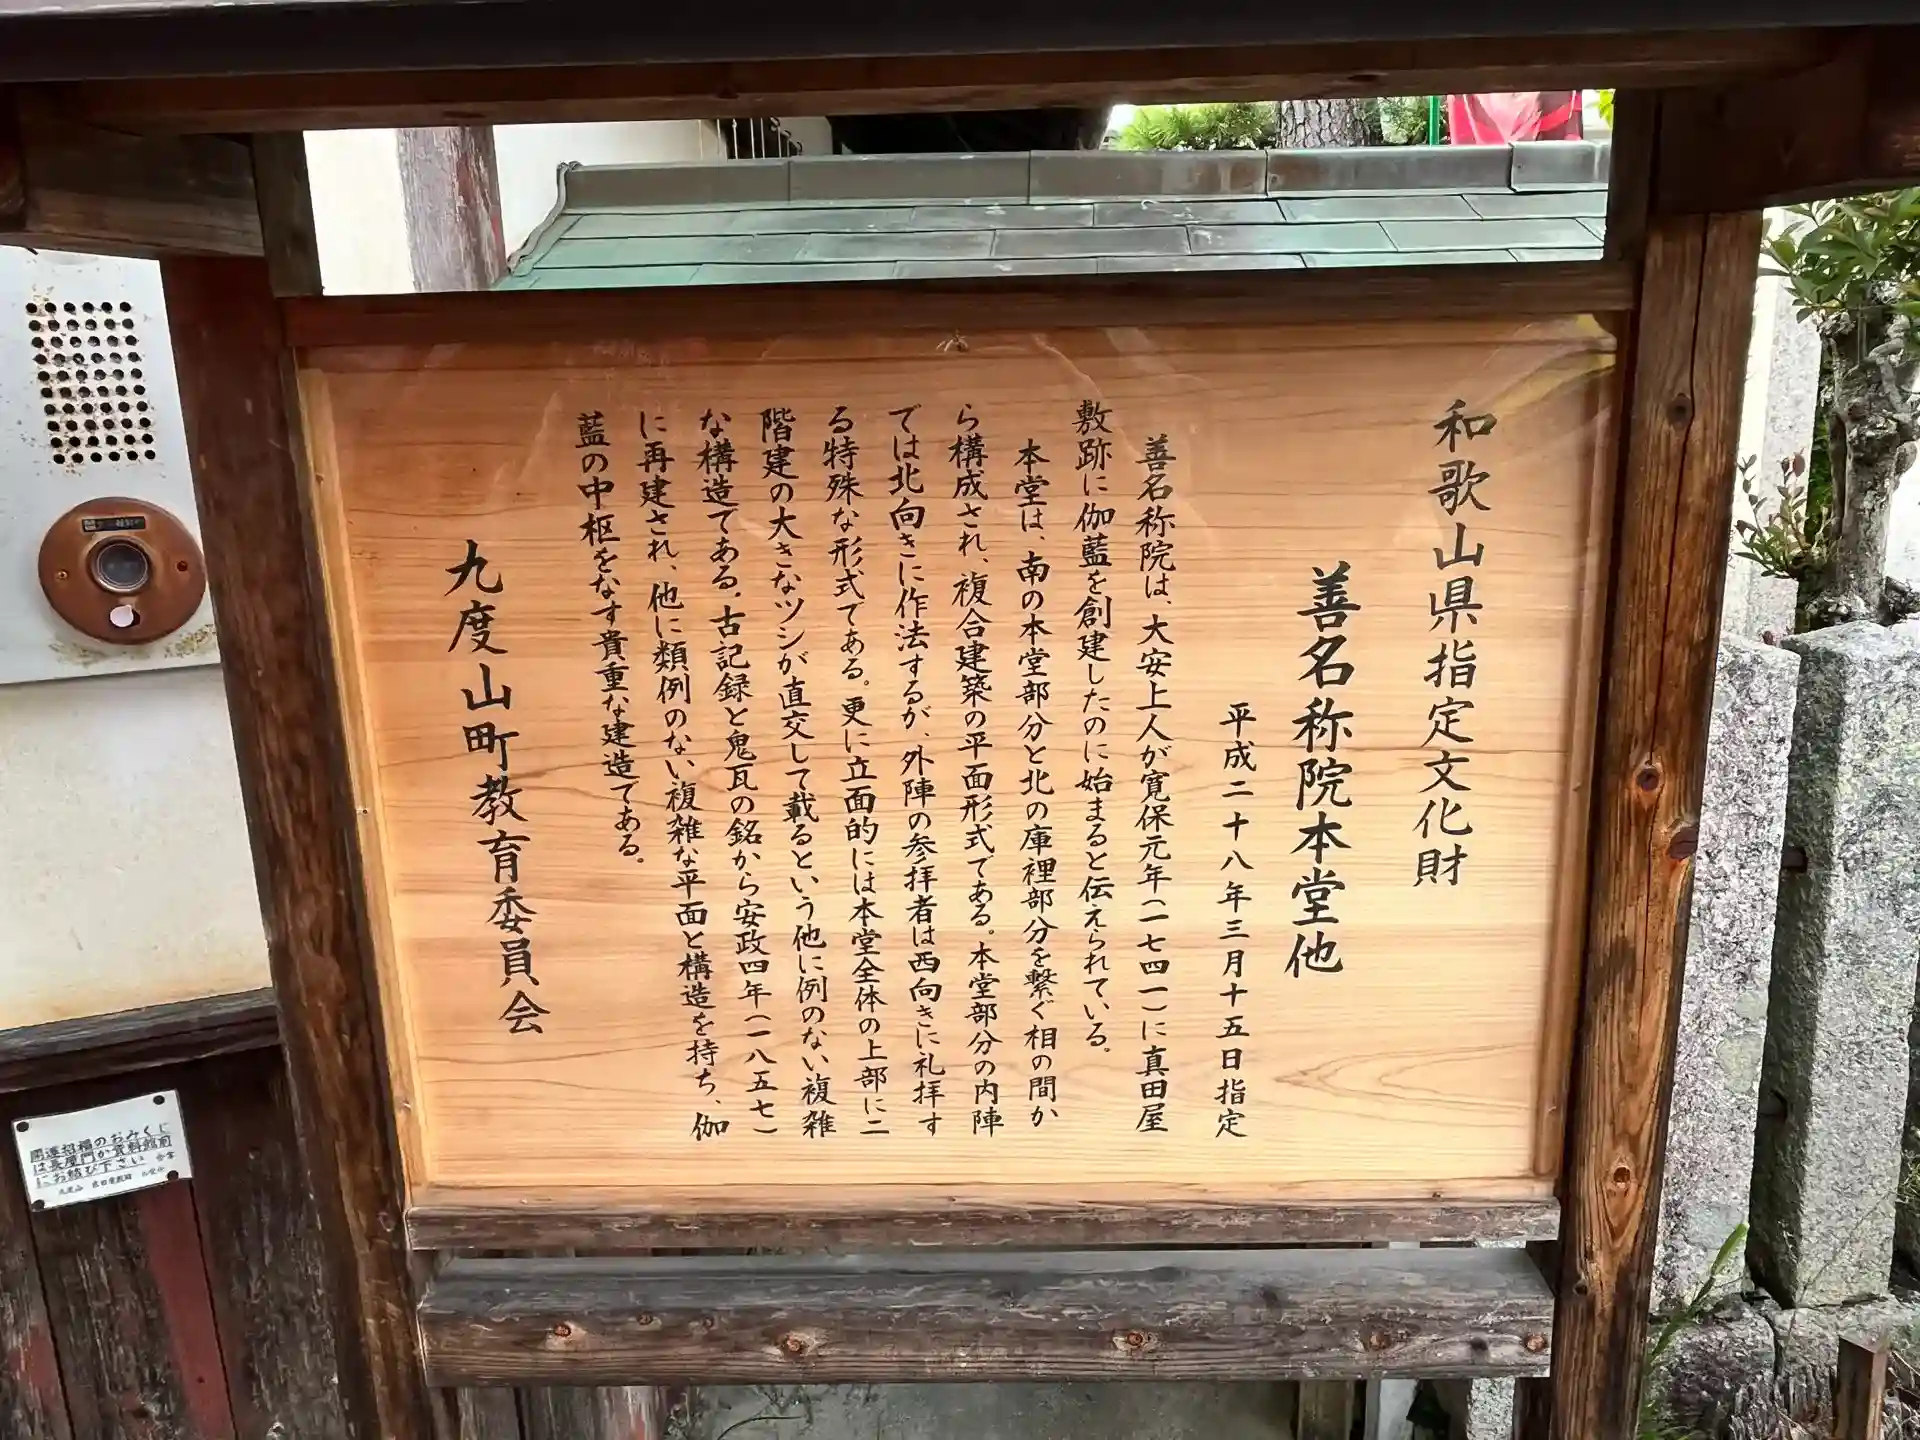 和歌山県指定文化財
善名称院本堂他
平成二十八年三月十五日指定
善名称院は、大安上人が寛保元年(一七四一)に真田屋
敷跡に伽藍を創建したのに始まると伝えられている。
本堂は、南の本堂部分と北の庫裡部分を繋ぐ相の間か
ら構成され、複合建築の平面形式である。本堂部分の内陣
では北向きに作法するが、外陣の参拝者は西向きに礼拝す
る特殊な形式である。更に立面的には本堂全体の上部に二
階建の大きなツシが直交して載るという他に例のない複雑
な構造である。古記録と鬼瓦の銘から安政四年(一八五七)
に再建され、他に類例のない複雑な平面と構造を持ち、伽
藍の中枢をなす貴重な建造である。
九度山町教育委員会
開運招福のおみくじ
は長屋門か資料館前
にお結び下さい
九度山